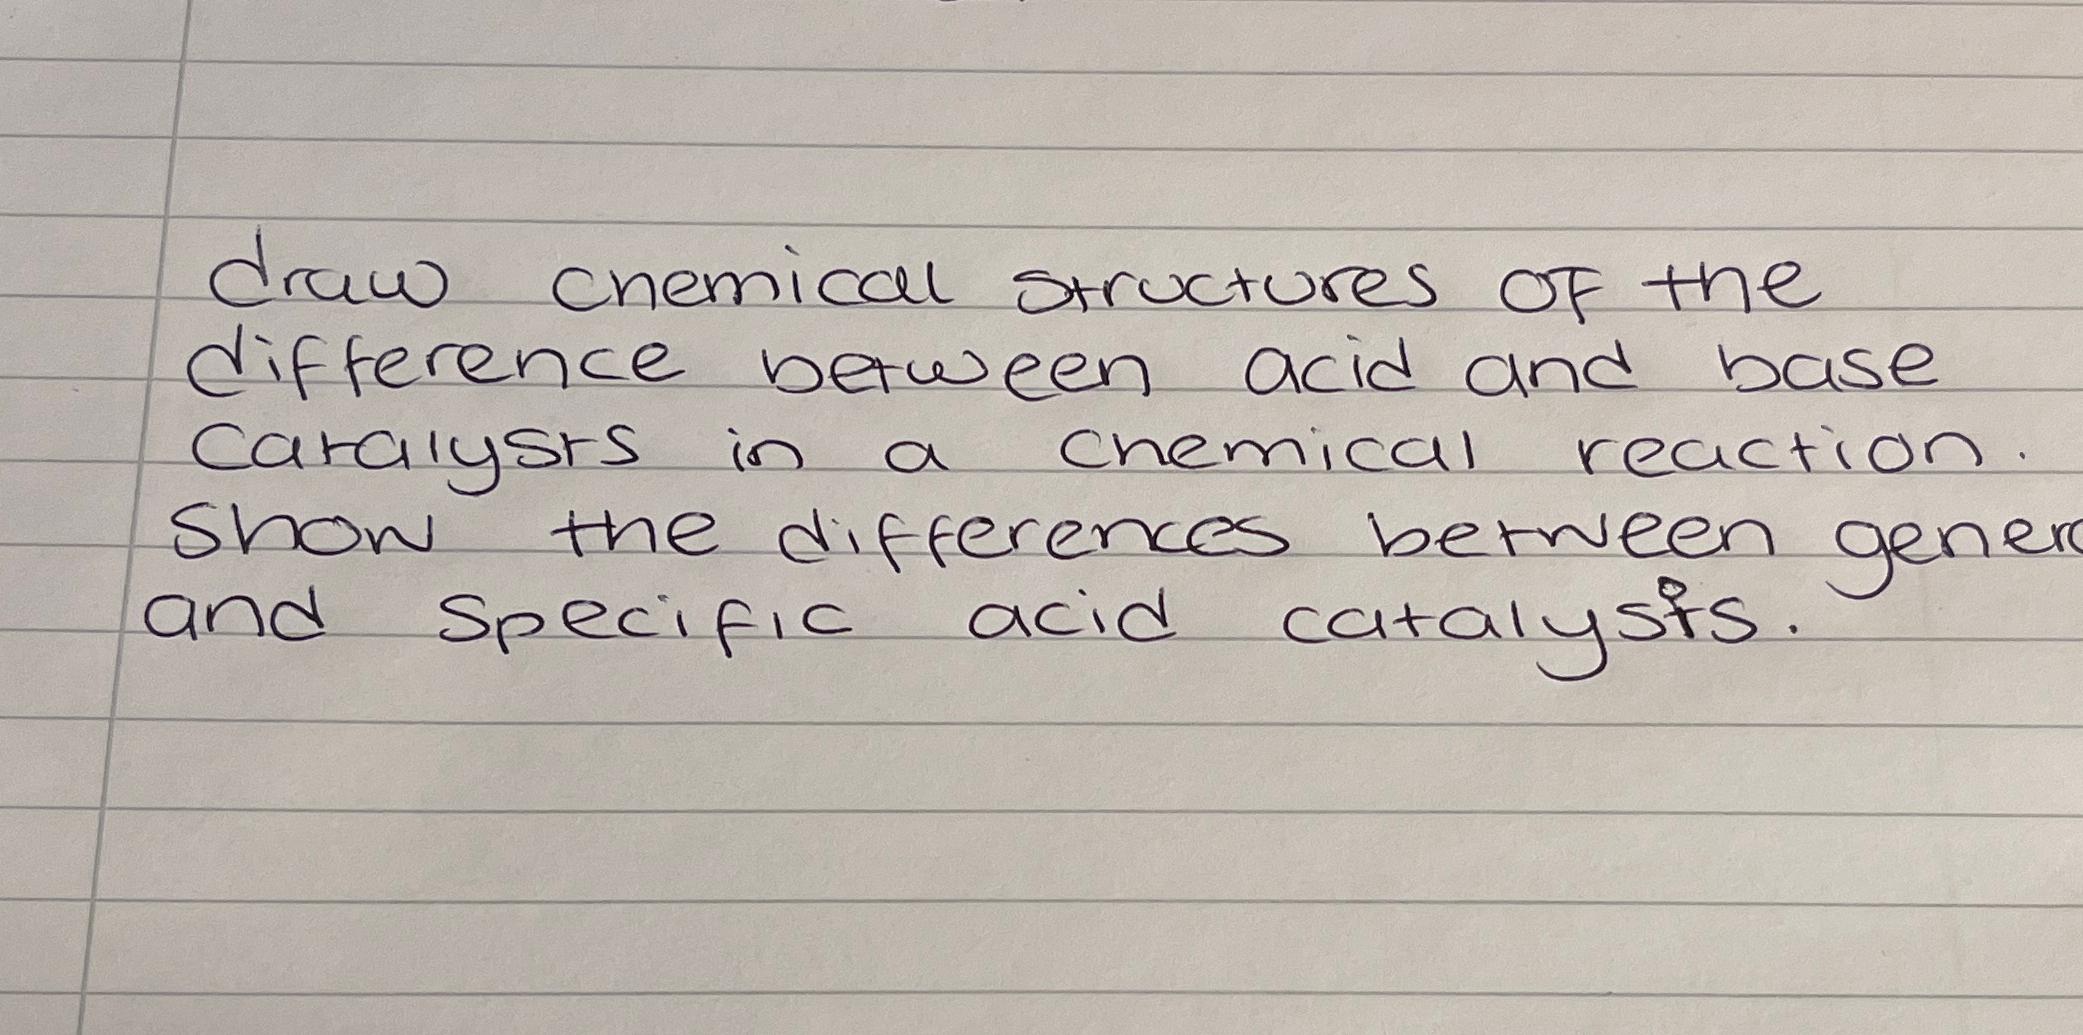 draw chemical structures of the
difference between acid and base
catalysts in a chemical reaction.
Show the differences between gener
and specific acid catalysts.